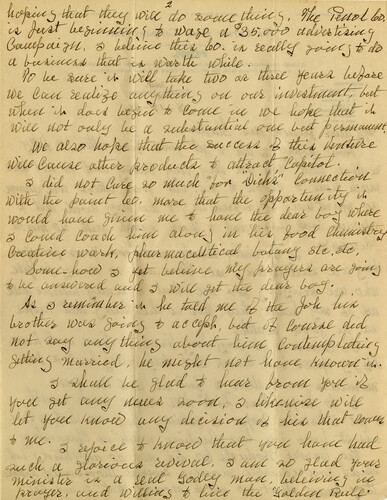 2
hoping that they will do something. The Penol Co.
is just beginning to wage a $35.000 advertising
Campaign. I believe this Co. is really going to do
a business that is worth while.
To be sure it will take two or three years before
we can realize anything on our investment, but
when it does begin to come in we hope that it
will not only be a substantial one but permanent.
We also hope that the success of this Venture
will cause other products to attract Capitol.
I did not care so much "for "Dick's" Connection
with the paint co. more that the opportunity it
would have given me to have the dear boy where
I could coach him along in his food Chemistry
Creative work, pharmaceutical botany etc. etc.
Some-how I yet believe my prayers are going
to be answered and I will get the dear boy.
As I remember it he told me of the Job his
brother was going to accept, but of course did
not say anything about him contemplating
getting married, he might not have known it.
I shall be glad to hear from you if
you get any news soon, I likewise will
let you know any decision of his that comes
to me.
I rejoice to know that you have had
such a glorious revival. I am so glad your
minister is a real Godly man, believing in
prayer, and willing to live the "Golden Rule"